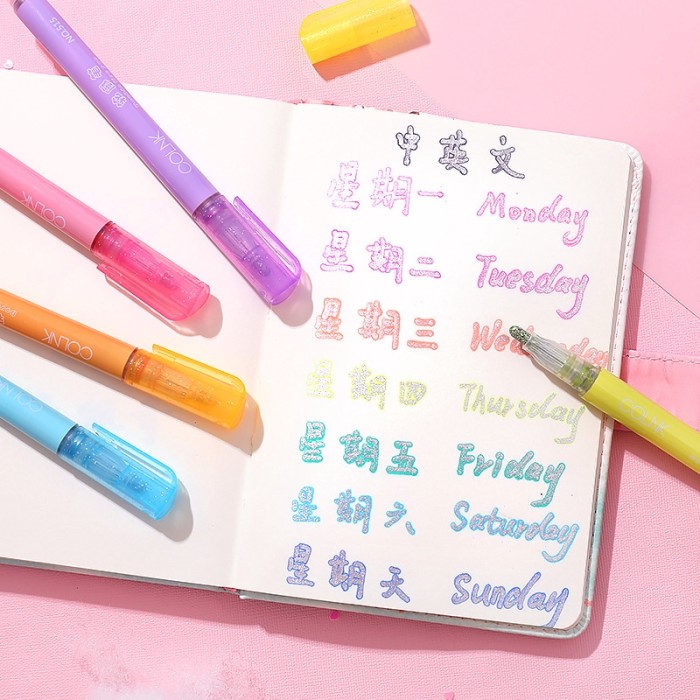 中英文
星期一 Monday
星期二 Tuesday
星期三 Wednesday
星期四 Thursday
星期五 Friday
星期六 Saturday
星期天 Sunday
COLNK
NO.515
COLNK
COLNK
COLNK